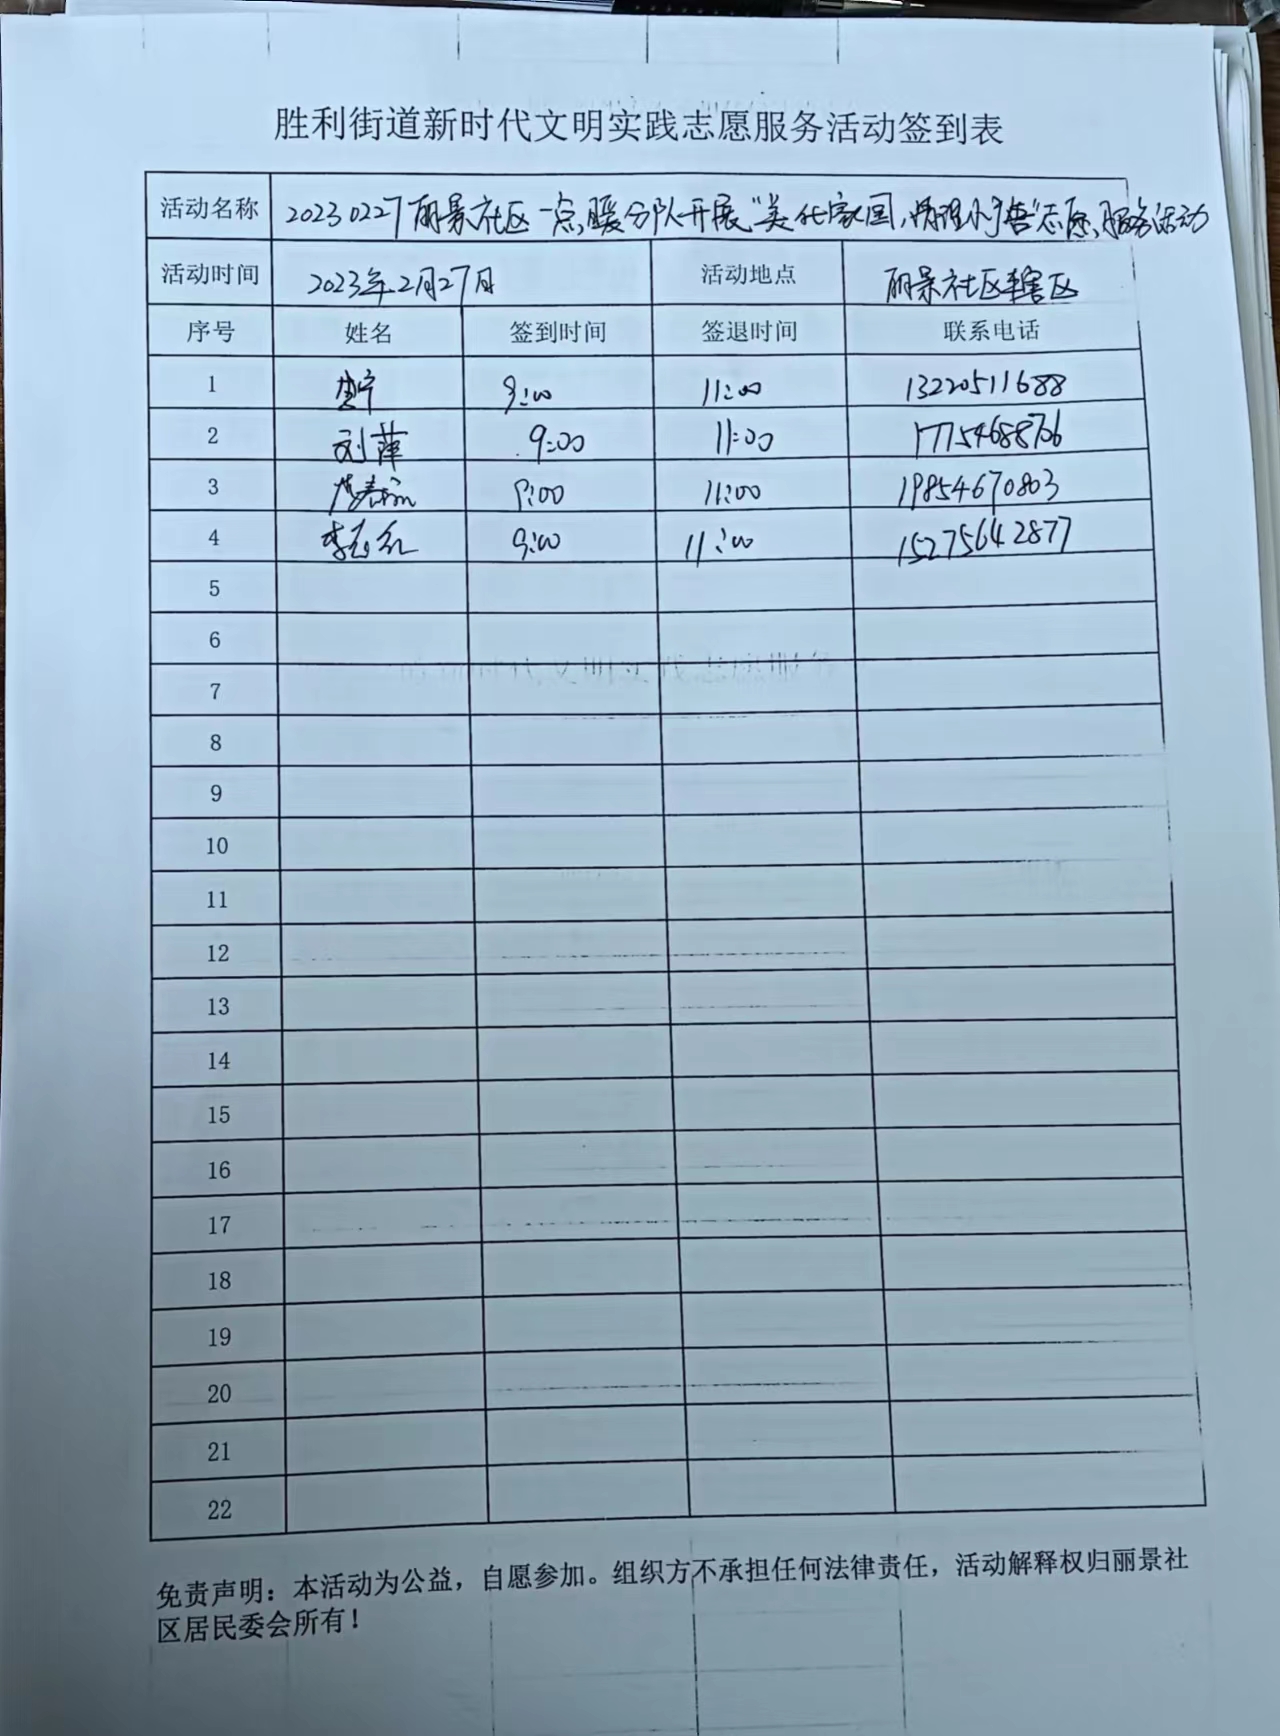 胜利街道新时代文明实践志愿服务活动签到表
活动名称 20230227丽景社区一点暖分队开展“美化家园,清理小广告”志愿服务活动
活动时间 2023年2月27日 活动地点 丽景社区辖区
序号 姓名 签到时间 签退时间 联系电话
1 9:00 11:00 13220511688
2 刘萍 9:00 11:00 17754688706
3 9:00 11:00 19854670803
4 李 红 9:00 11:00 15275642877
5
6
7
8
9
10
11
12
13
14
15
16
17
18
19
20
21
22
免责声明：本活动为公益，自愿参加。组织方不承担任何法律责任，活动解释权归丽景社
区居民委会所有！